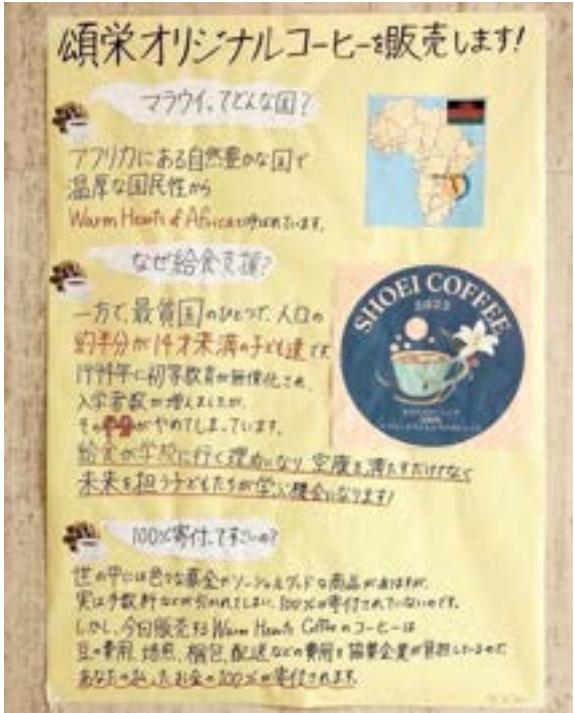 頌栄オリジナルコーヒーを販売します!
マラウイってどんな国?
アフリカにある自然豊かな国で
温厚な国民性から
Warm Heart of Africaと呼ばれています。
なぜ給食支援?
一方で、最貧国のひとつで、人口の
約半分が14才未満の子ども達です
1994年に初等教育が無償化され、
入学者数が増えましたが、
その半分がやめてしまっています。
給食が学校に行く理由になり、空腹を満たすだけでなく
未来を担う子どもたちが学ぶ機会になります!
SHOEI COFFEE
2022
100%寄付ってすごいの?
世の中には色々な募金やソーシャルグッドな商品がありますが、
実は手数料などが引かれてしまい、100%が寄付されていないのです。
しかし、今回販売するWarm Hearts Coffeeのコーヒーは
豆の費用、焙煎、梱包、配送などの費用を協業企業が負担しているので
あなたの払ったお金の100%が寄付されます。